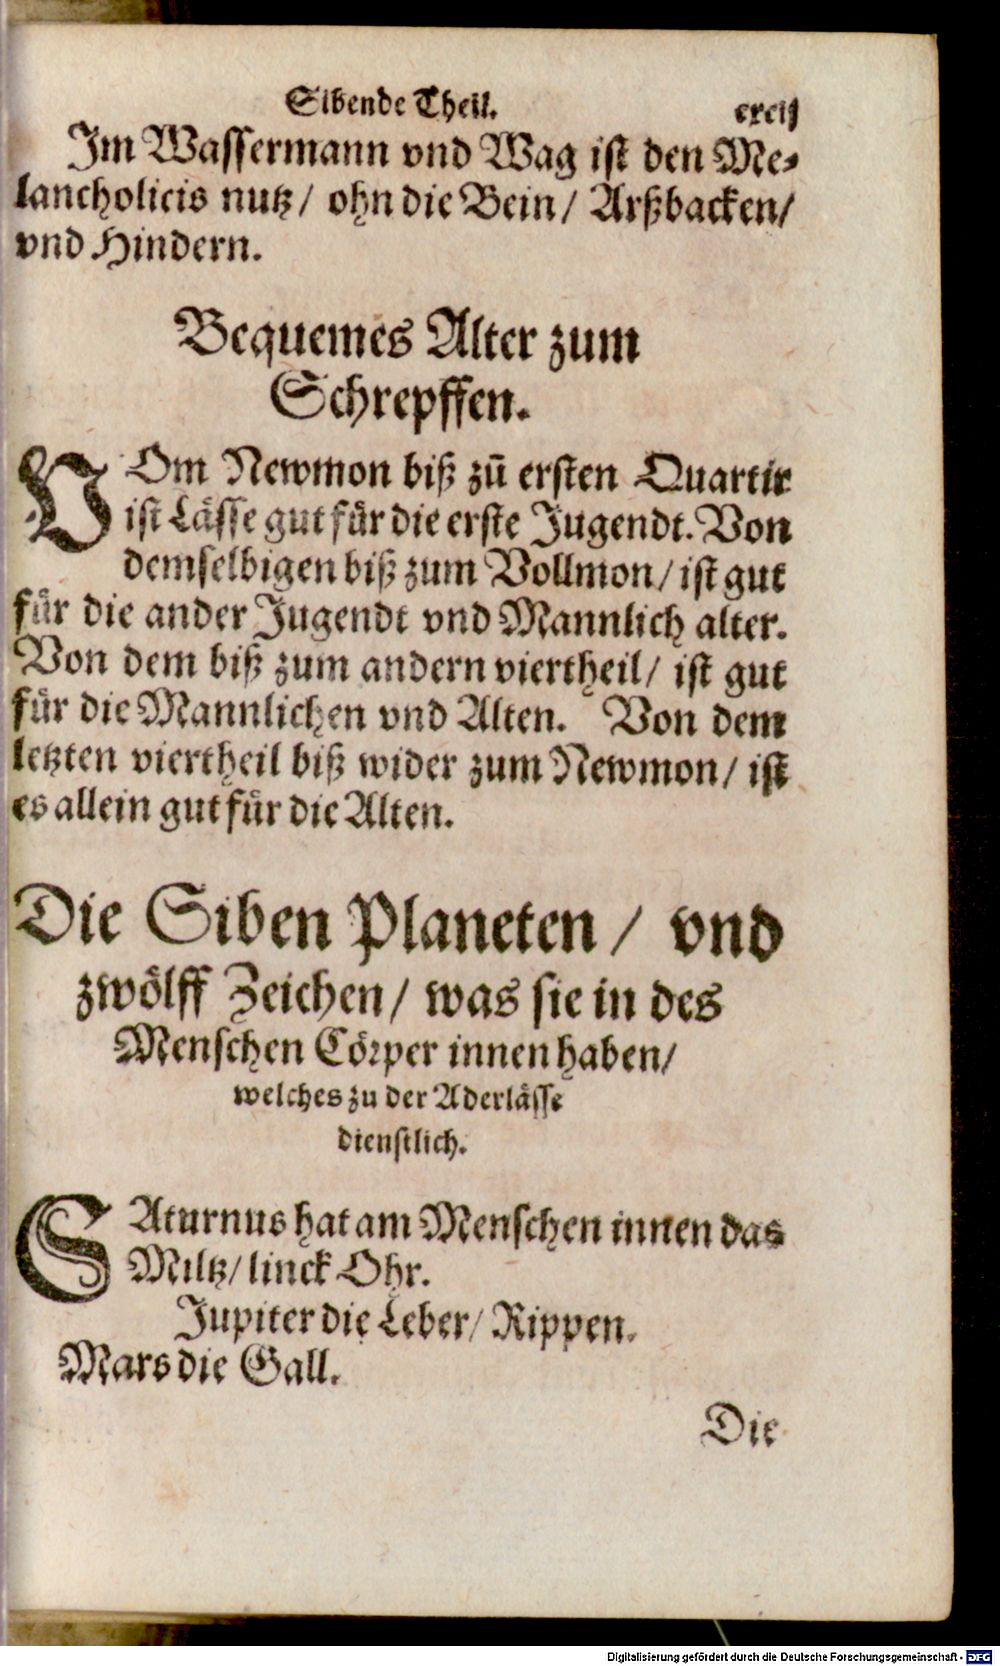 Sibende Theil. cxcij
Im Wassermann vnd Wag ist den Me-
lancholicis nutz / ohn die Bein / Arßbacken /
vnd Hindern.
Bequemes Alter zum
Schrepffen.
VOm Newmon biß zů ersten Quartir
ist Lässe gut für die erste Jugendt. Von
demselbigen biß zum Vollmon / ist gut
für die ander Jugendt vnd Mannlich alter.
Von dem biß zum andern viertheil / ist gut
für die Mannlichen vnd Alten. Von dem
letzten viertheil biß wider zum Newmon / ist
es allein gut für die Alten.
Die Siben Planeten / vnd
zwölff Zeichen / was sie in des
Menschen Cörper innen haben /
welches zu der Aderlässe
dienstlich.
SAturnus hat am Menschen innen das
Miltz / linck Ohr.
Jupiter die Leber / Rippen.
Mars die Gall.
Die
Digitalisierung gefördert durch die Deutsche Forschungsgemeinschaft - DFG